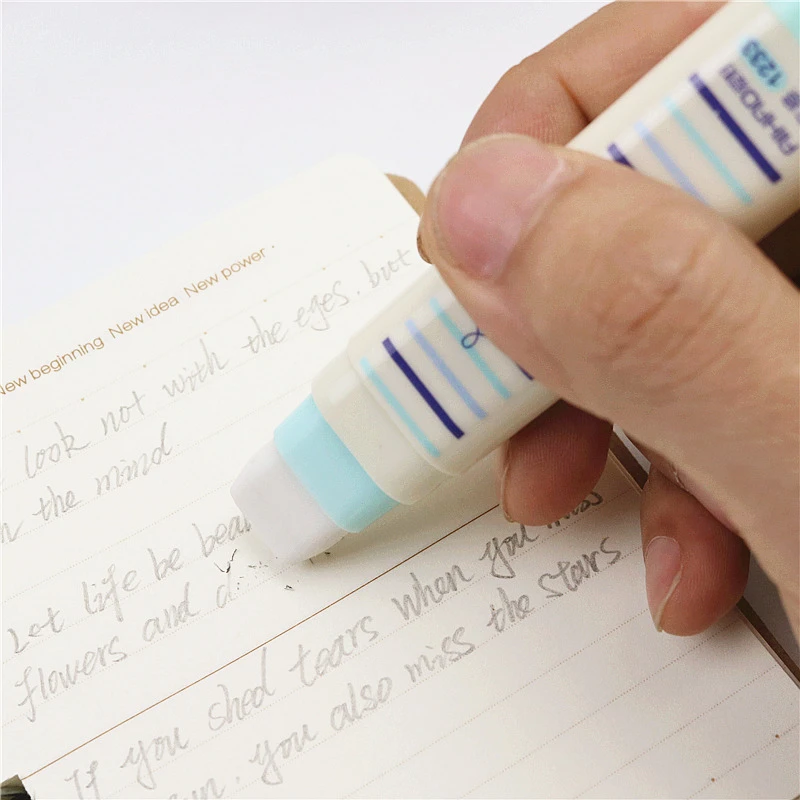 New beginning New idea New power
look not with the eyes. but
the mind.
Let life be beau
flowers and d
If you shed tears when you miss
you also miss the stars
1233